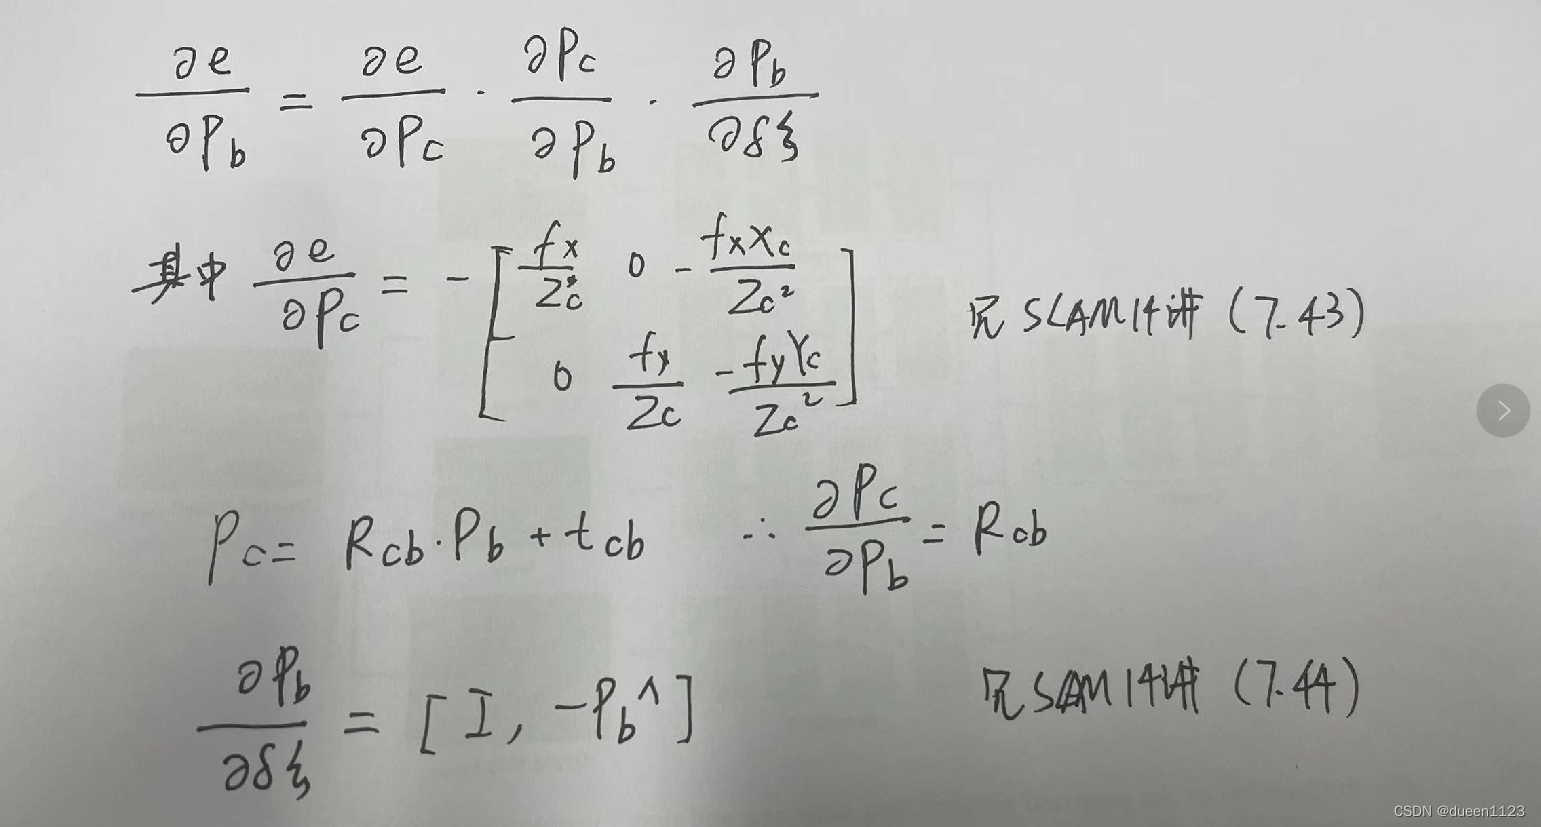 ∂e/∂P_b = ∂e/∂P_c · ∂P_c/∂P_b · ∂P_b/∂δξ
其中 ∂e/∂P_c = -[ f_x/Z_c 0 -f_xX_c/Z_c²
0 f_y/Z_c -f_yY_c/Z_c² ] 见SLAM14讲 (7.43)
P_c = R_cb·P_b + t_cb ∴ ∂P_c/∂P_b = R_cb
∂P_b/∂δξ = [I, -P_b^] 见SAM14讲 (7.44)
CSDN @dueen1123